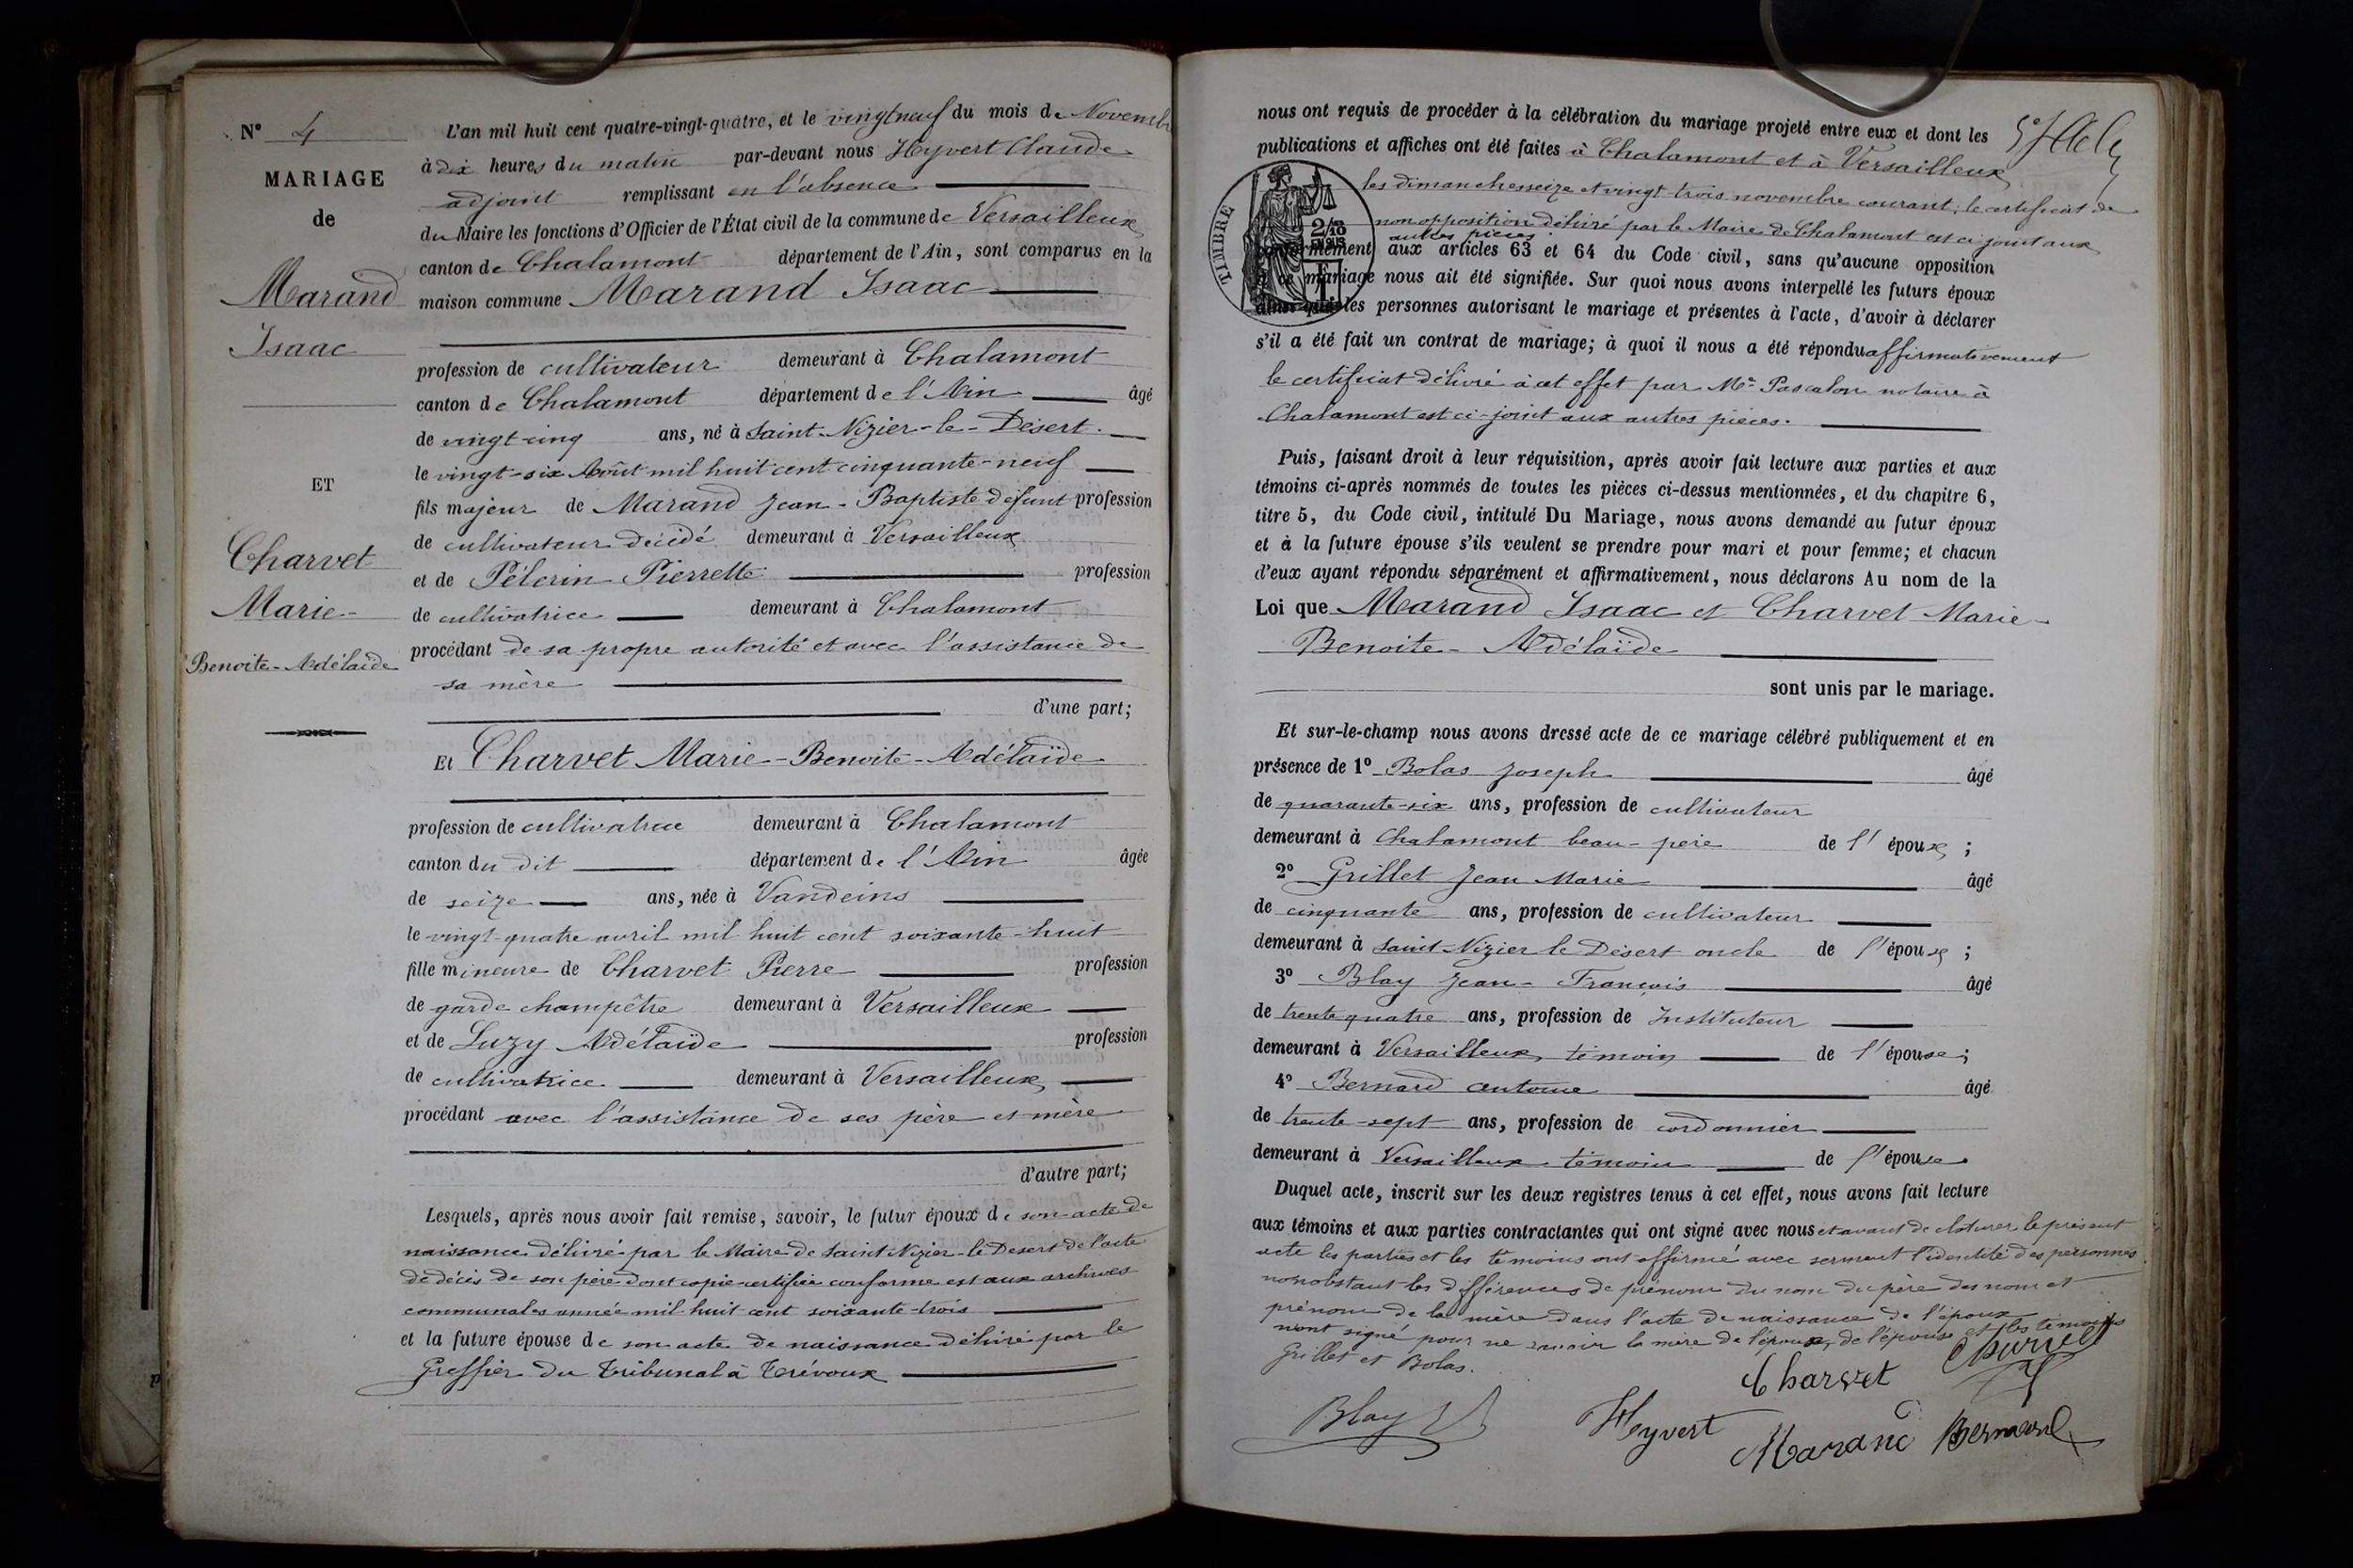 N° 4
MARIAGE
de
Marand
Isaac
ET
Charvet
Marie-
Benoite-Adélaïde
L'an mil huit cent quatre-vingt-quatre, et le vingt neuf du mois de Novembre
à dix heures du matin par-devant nous Heyvert Claude
adjoint remplissant en l'absence
du Maire les fonctions d'Officier de l'État civil de la commune de Versailleux
canton de Chalamont département de l'Ain, sont comparus en la
maison commune Marand Isaac
profession de cultivateur demeurant à Chalamont
canton de Chalamont département de l'Ain âgé
de vingt-cinq ans, né à Saint-Nizier-le-Désert.
le vingt-six Août mil huit cent cinquante-neuf
fils majeur de Marand Jean-Baptiste défunt profession
de cultivateur décidé demeurant à Versailleux
et de Pélerin Pierrette profession
de cultivatrice demeurant à Chalamont
procédant de sa propre autorité et avec l'assistance de
sa mère
d'une part;
Et Charvet Marie-Benoite-Adélaïde
profession de cultivatrice demeurant à Chalamont
canton du dit département de l'Ain âgée
de seize ans, née à Vandeins
le vingt-quatre avril mil huit cent soixante-huit
fille mineure de Charvet Pierre profession
de garde champêtre demeurant à Versailleux
et de Luzy Adélaïde profession
de cultivatrice demeurant à Versailleux
procédant avec l'assistance de ses père et mère
d'autre part;
Lesquels, après nous avoir fait remise, savoir, le futur époux de son acte de
naissance délivré par le Maire de Saint Nizier-le-Desert de l'acte
de décès de son père dont copie certifiée conforme est aux archives
communales année mil huit cent soixante-trois
et la future épouse de son acte de naissance délivré par le
Greffier du Tribunal à Trévoux
nous ont requis de procéder à la célébration du mariage projeté entre eux et dont les
publications et affiches ont été faites à Chalamont et à Versailleux
les dimanches seize et vingt trois novembre courant; le certificat de
non opposition délivré par le Maire de Chalamont est ci joint aux
autres pièces.
TIMBRE
conformément aux articles 63 et 64 du Code civil, sans qu'aucune opposition
à ce mariage nous ait été signifiée. Sur quoi nous avons interpellé les futurs époux
ainsi que les personnes autorisant le mariage et présentes à l'acte, d'avoir à déclarer
s'il a été fait un contrat de mariage; à quoi il nous a été répondu affirmativement
le certificat délivré à cet effet par Me Pascalon notaire à
Chalamont est ci-joint aux autres pièces.
Puis, faisant droit à leur réquisition, après avoir fait lecture aux parties et aux
témoins ci-après nommés de toutes les pièces ci-dessus mentionnées, et du chapitre 6,
titre 5, du Code civil, intitulé Du Mariage, nous avons demandé au futur époux
et à la future épouse s'ils veulent se prendre pour mari et pour femme; et chacun
d'eux ayant répondu séparément et affirmativement, nous déclarons Au nom de la
Loi que Marand Isaac et Charvet Marie-
Benoite-Adélaïde
sont unis par le mariage.
Et sur-le-champ nous avons dressé acte de ce mariage célébré publiquement et en
présence de 1° Bolas Joseph âgé
de quarante-six ans, profession de cultivateur
demeurant à Chalamont beau-père de l'époux;
2° Grillet Jean Marie âgé
de cinquante ans, profession de cultivateur
demeurant à Saint-Nizier le Désert oncle de l'époux;
3° Blay Jean-François âgé
de trente quatre ans, profession de Instituteur
demeurant à Versailleux témoin de l'épouse;
4° Bernard antoine âgé
de trente-sept ans, profession de cordonnier
demeurant à Versailleux témoin de l'épouse
Duquel acte, inscrit sur les deux registres tenus à cet effet, nous avons fait lecture
aux témoins et aux parties contractantes qui ont signé avec nous et avant de cloturer le présent
acte les parties et les témoins ont affirmé avec serment l'identité des personnes
nonobstant les différences de prénom du nom du père des nom et
prénom de la mère dans l'acte de naissance de l'époux
n'ont signé pour ne savoir la mère de l'époux, de l'épouse et les témoins
Grillet et Bolas.
Charvet
Blay
Heyvert
Marand
Bernard